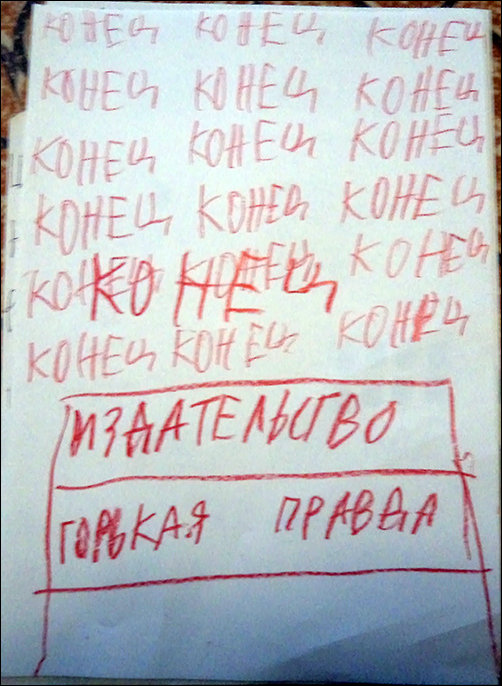 КОНЕЦ КОНЕЦ КОНЕЦ
КОНЕЦ КОНЕЦ КОНЕЦ
КОНЕЦ КОНЕЦ КОНЕЦ
КОНЕЦ КОНЕЦ КОНЕЦ
КОНЕЦ КОНЕЦ КОНЕЦ
КОНЕЦ
КОНЕЦ КОНЕЦ КОНЕЦ
ИЗДАТЕЛЬСТВО
ГОРЬКАЯ ПРАВДА